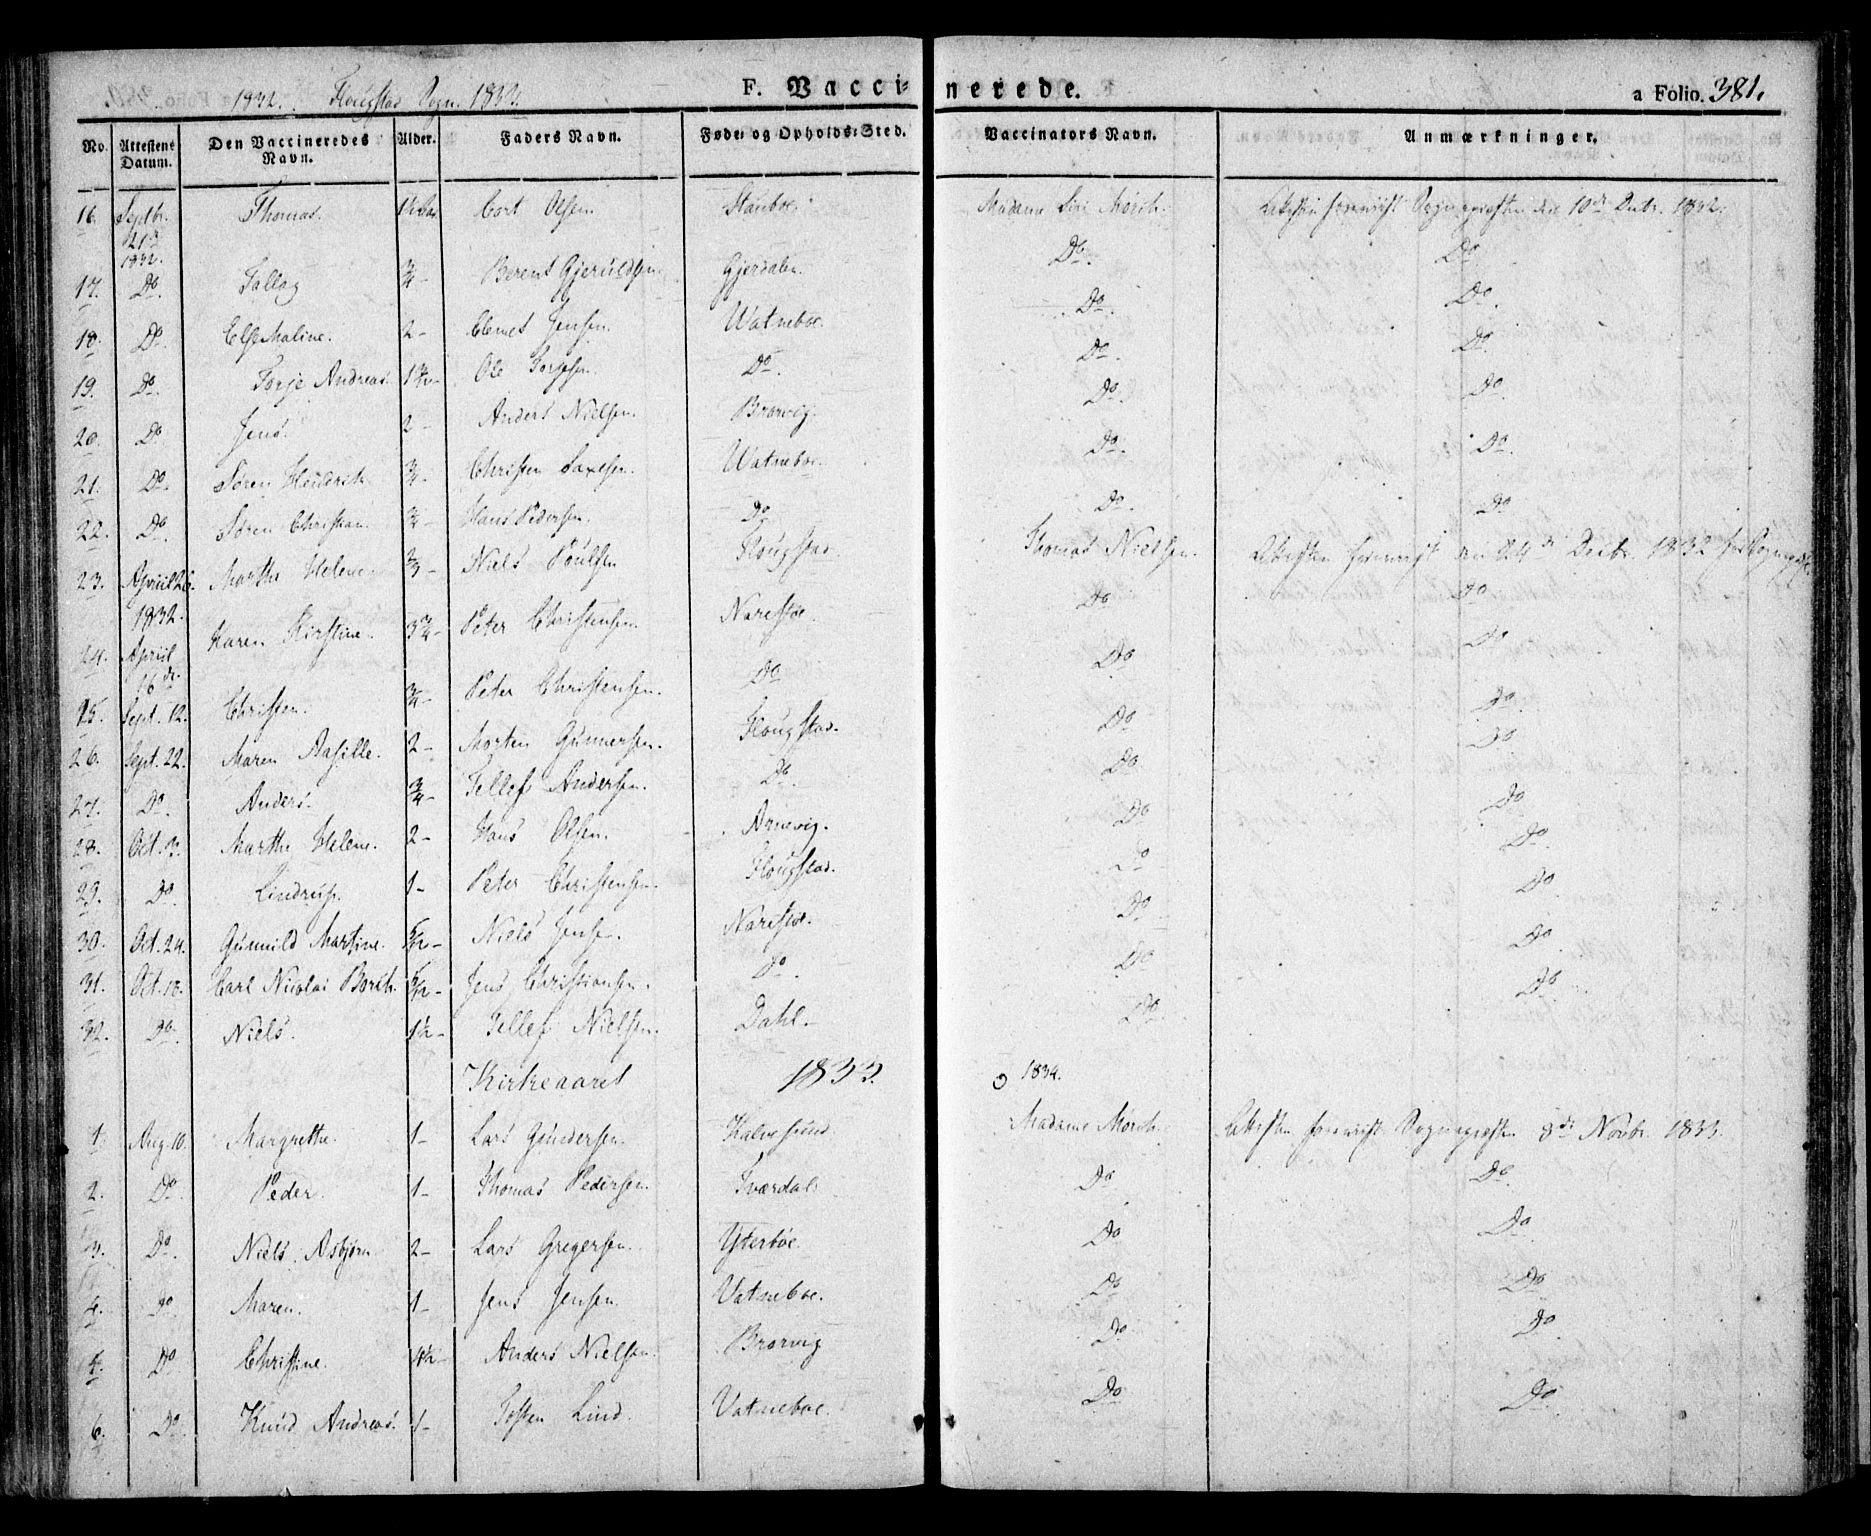 1832. Flougstad Sogn. 1833.
F. Vaccinerede.
a Folio. 381.
No. Attestens Datum. Den Vaccineredes Navn. Alder. Faders Navn. Føde- og Opholds-Sted. Vaccinators Navn. Anmærkninger.
16. Septbr. 21de 1832. Thomas. Cort Olsen Madame Mörch. Attesten Sognepræsten den 10de 1832.
17. Do. Tallag ¾- Berent Gjeruldsen Gjerdalen. Do. Do
18. Do. Else Maline. 2- Clemet Jensen. Watneboe. Do. Do.
19. Do. Torje Andreas. Ole Torjesen. Do. Do. Do.
20. Do Jens. 2- Anders Nielsen. Brorvig. Do. Do
21. Do. Søren Hendrik ¾- Christen Watneboe. Do. Do.
22. Do. Søren Christian. ¾- Hans Pedersen. Do Do. Do
23. Apriil 26. 1832. Marthe Helene. Niels Poulsen Flougstad. Thomas Nielsen. Attesten den 24de Decbr. 1832
24. Apriil 16de. Karen Kirstine. 3¾- Peter Christensen. Narestøe. Do Do
25. Sept. 12. Christen. ¾- Peter Christensen. Do Do Do
26. Sept. 22. Maren Aasille. 2- Morten Gunnersen. Flougstad. Do Do
27. Do. Anders. ¾- Tellef Andersen. Do. Do Do
28. Oct. 3. Marthe Helene. 2- Hans Olsen. Arnevig. Do Do
29. Do. Lindrup. 1- Peter Christensen. Flougstad. Do Do.
30. Oct. 24. Gunnild Martine. Niels Jensen. Narestøe. Do Do
31. Oct. 18. Carl Nicolai Jens Christiansen. Do. Do Do
32. Do. Niels. 1½- Tellef Nielsen. Dahl. Do. Do
Kirkeaaret 1833. 1834.
1. Aug. 10. Margrethe. 1- Lars Gundersen. Kalvesund. Madame Mörch. Attesten Sognepræsten 8de Novbr. 1833.
2. Do. Peder. 1- Thomas Pedersen Do Do
3. Do. Niels Asbjørn 2- Lars Gregersen. Yterboe. Do Do
4. Do Maren. 1- Jens Jensen. Vatneboe. Do Do
5. Do Christine. Anders Nielsen. Brorvig Do Do
6. Do. Knud Andreas. 1- Tosten Lind. Vatneboe. Do Do.